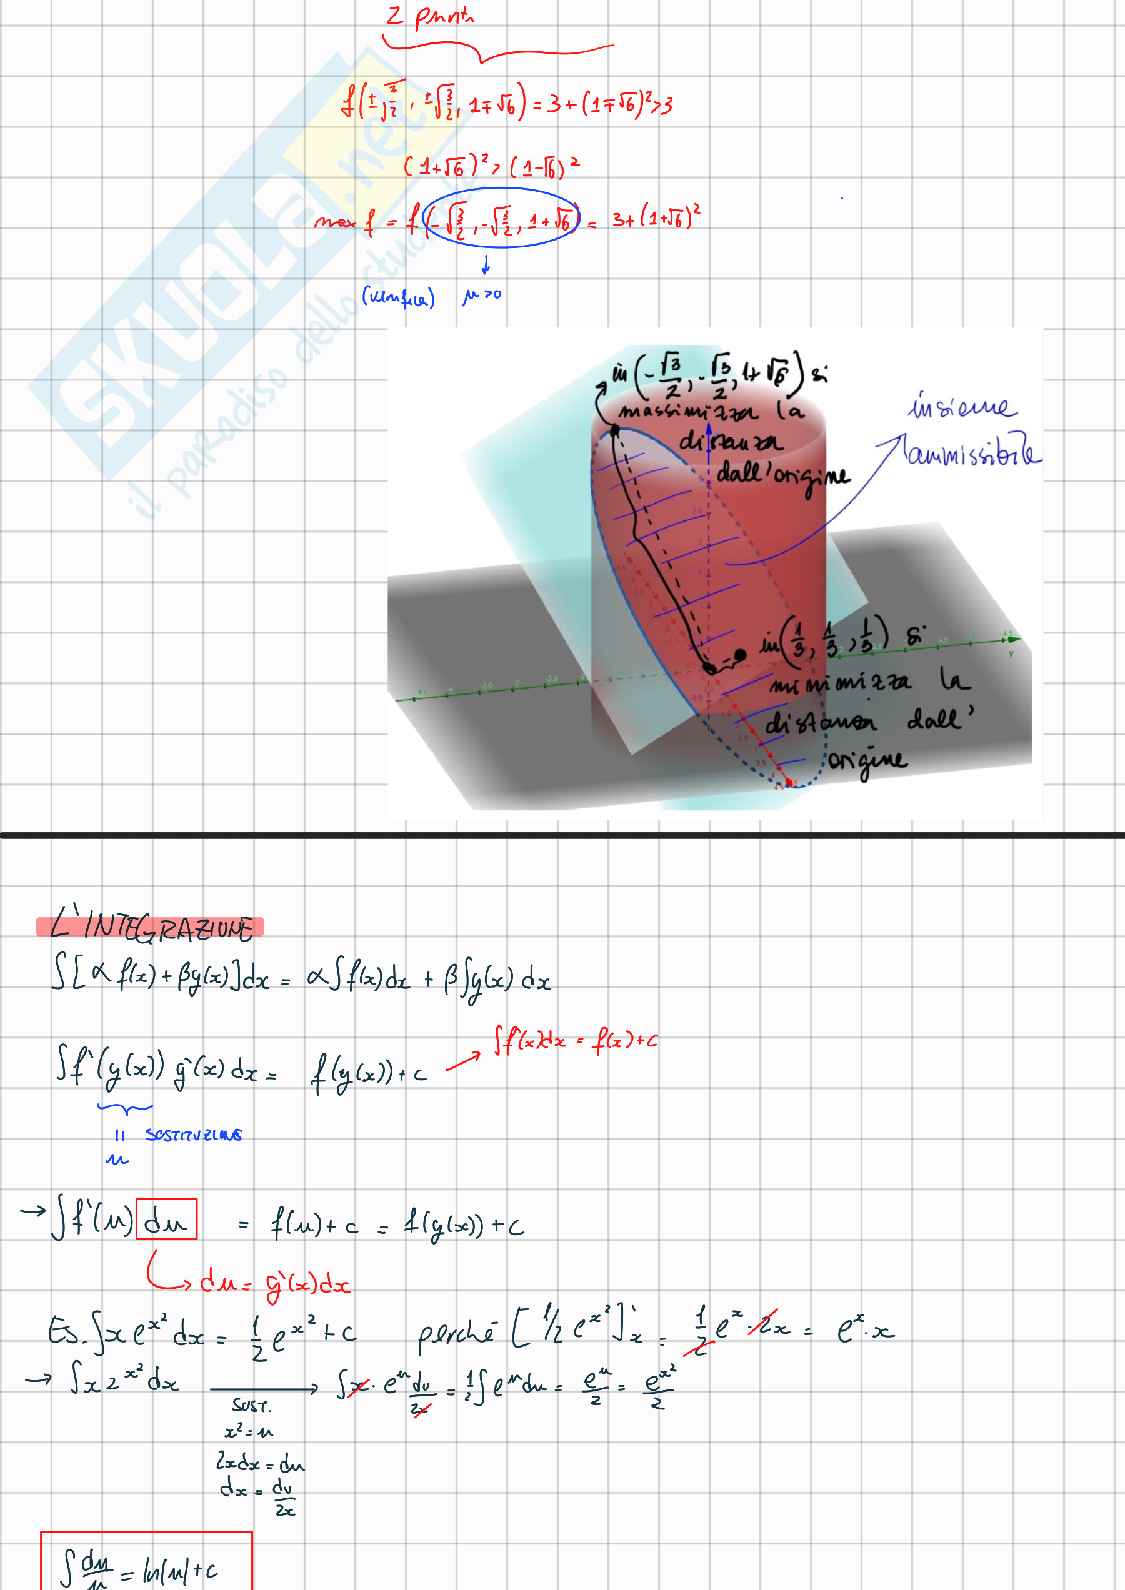 2 punti
f(±√3/2, ±√3/2, 1∓√6) = 3+(1∓√6)²>3
(1+√6)² > (1-√6)²
max f = f(-√3/2, -√3/2, 1+√6) = 3+(1+√6)²
(verifica) μ>0
SKUOLA.net
il paradiso dello studente
in (-√3/2, -√3/2, 1+√6) si
massimizza la
distanza
dall'origine
insieme
ammissibile
in (1/3, 1/3, 1/3) si
minimizza la
distanza dall'
origine
Y
L'INTEGRAZIONE
∫[α f(x) + βg(x)]dx = α∫f(x)dx + β∫g(x) dx
∫f'(x)dx = f(x)+c
∫f'(g(x)) g'(x) dx = f(g(x))+c
" SOSTITUZIONE
u
→ ∫f'(u) du = f(u)+c = f(g(x))+c
du = g'(x)dx
Es. ∫x e^x² dx = 1/2 e^x² + c perché [1/2 e^x²]'x = 1/2 e^x · 2x = e^x · x
→ ∫x 2^x² dx → ∫x · e^u du/2x = 1/2 ∫e^u du = e^u/2 = e^x²/2
SOST.
x² = u
2xdx = du
dx = du/2x
∫ du/u = ln|u| + c